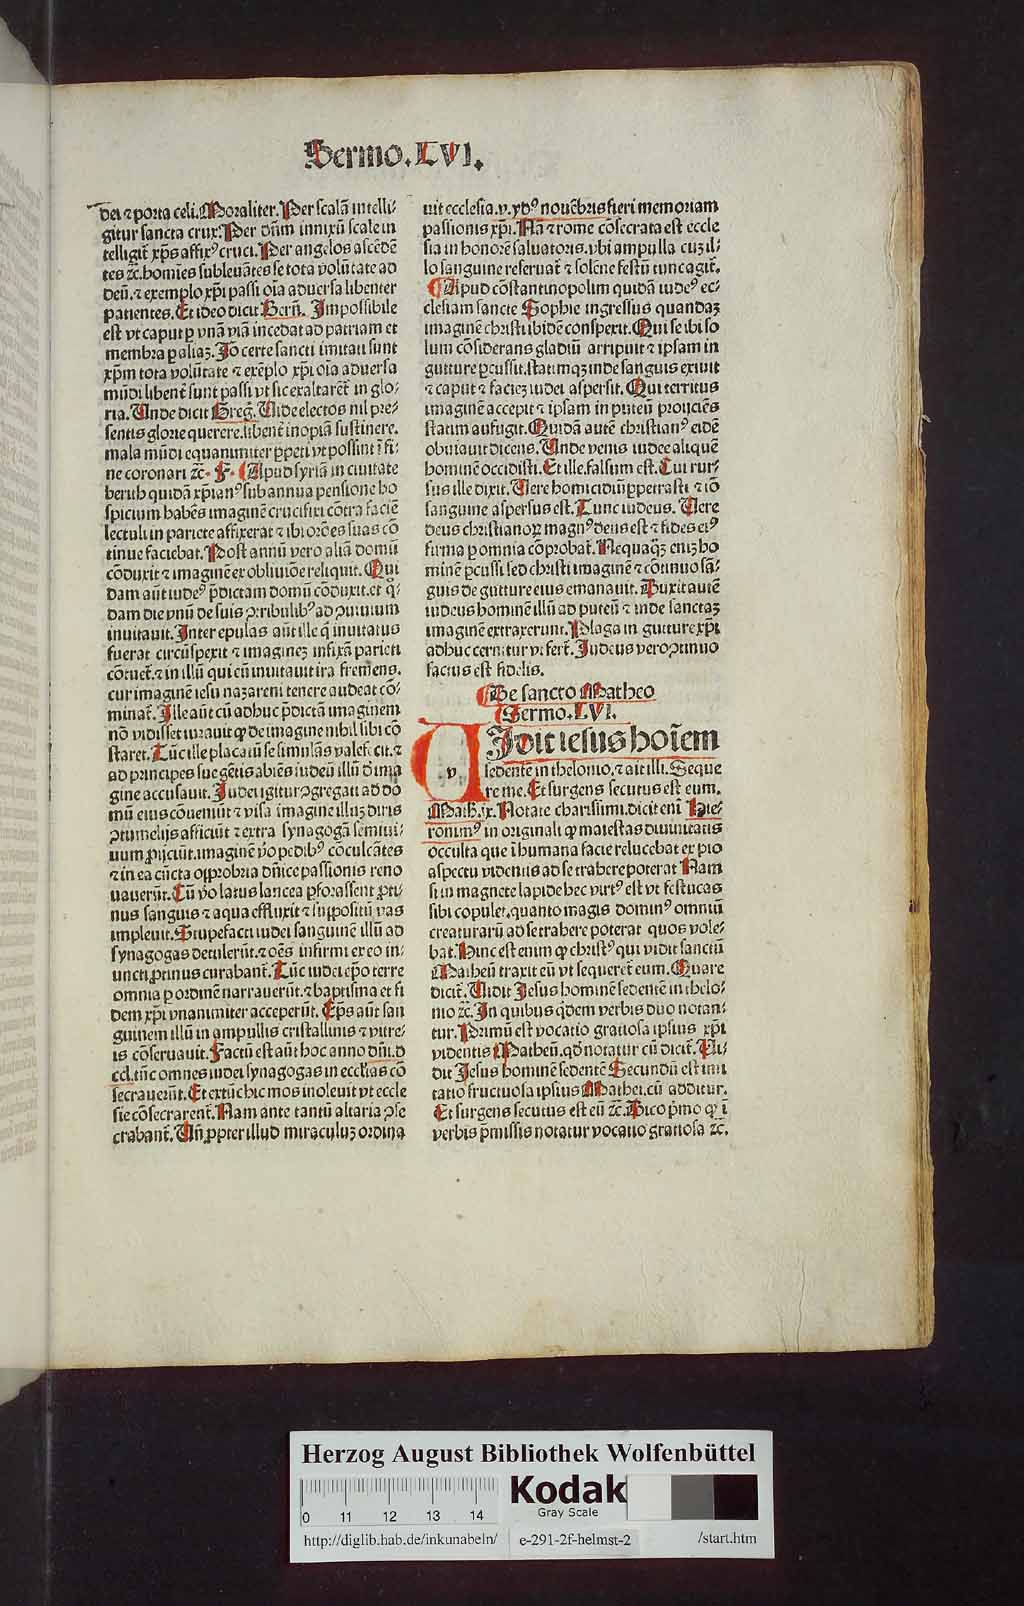 Sermo.LVI.
dei ⁊ porta celi. Moraliter. Per scalã intelli⸗
gitur sancta crux. Per dñm innixũ scale in
telligit̃ xp̃s affixꝰ cruci. Per angelos ascẽdẽ
tes ⁊c̃. homĩes subleuãtes se tota volũtate ad
deũ. ⁊ exemplo xp̃i passi oĩa aduersa libenter
patientes. Et ideo dicit Bern̄. Impossibile
est vt caput ꝑ vnã viã incedat ad patriam et
membra ꝑ aliaꝫ. Iõ certe sancti imitati sunt
xp̃m tota volũtate ⁊ exẽplo xp̃i oĩa aduersa
mũdi libent̃ sunt passi vt sic exaltarẽt̃ in glo⸗
ria. Unde dicit Greg. Uide electos nil pre⸗
sentis glorie querere. libent̃ inopiã sustinere.
mala mũdi equanimiter ꝑpeti vt possint ĩ fi⸗
ne coronari ⁊c̃. F. Apud syriã in ciuitate
berith quidã xp̃ianꝰ sub annua pensione ho
spicium habẽs imaginẽ crucifixi cõtra faciẽ
lectuli in pariete affixerat ⁊ ibi orões suas cõ
tinue faciebat. Post annũ vero aliã domũ
cõduxit ⁊ imaginẽ ex obliuiõe reliquit. Qui
dam aũt iudeꝰ p̃dictam domũ cõduxit. et q̃⸗
dam die vnũ de suis ꝯtribulibꝰ ad ꝯuiuium
inuitauit. Inter epulas aũt ille q̃ inuitatus
fuerat circũspexit ⁊ imagineꝫ infixã parieti
cõtuet̃. ⁊ in illũ qui eũ inuitauit ira fremens.
cur imaginẽ iesu nazareni tenere audeat cõ⸗
minat̃. Ille aũt cũ adhuc p̃dictã imaginem
nõ vidisset iurauit ꝙ de imagine nihil sibi cõ
staret. Tũc ille placatũ se simulãs valefecit. ⁊
ad principes sue gẽtis abiẽs iudeũ illũ d̃ ima
gine accusauit. Iudei igitur ꝯgregati ad do
mũ eius cõueniũt ⁊ visa imagine illuꝫ diris
ꝯtumelijs afficiũt ⁊ extra synagogã semiui⸗
uum ꝓijciũt. imaginẽ ṽo pedibꝰ cõculcãtes
⁊ in ea cũcta opprobria dñice passionis reno
uauerũt. Cũ ṽo latus lancea ꝑforassent ꝓti⸗
nus sanguis ⁊ aqua effluxit ⁊ suppositũ vas
impleuit. Stupefacti iudei sanguinẽ illũ ad
synagogas detulerũt. ⁊ oẽs infirmi ex eo in⸗
uncti ꝓtinus curabant̃. Tũc iudei ep̃o terre
omnia ꝑ ordinẽ narrauerũt. ⁊ baptisma et fi
dem xp̃i vnanimiter acceperũt. Ep̃s aũt san
guinem illũ in ampullis cristallinis ⁊ vitre⸗
is cõseruauit. Factũ est aũt hoc anno dñi. d
ccl. tũc omnes iudei synagogas in eccl̃ias cõ
secrauerũt. Et extũc hic mos inoleuit vt eccle
sie cõsecrarent̃. Nam ante tantũ altaria ꝯse
crabant̃. Uñ ꝓpter illud miraculuꝫ ordina
uit ecclesia. v. ydꝰ nouẽbris fieri memoriam
passionis xp̃i. Nã ⁊ rome cõsecrata est eccle
sia in honorẽ saluatoris. vbi ampulla cuꝫ il⸗
lo sanguine reseruat̃ ⁊ solẽne festũ tunc agit̃.
Apud cõstantinopolim quidã iudeꝰ ec⸗
clesiam sancte Sophie ingressus quandaꝫ
imaginẽ christi ibidẽ conspexit. Qui se ibi so
lum cõsiderans gladiũ arripuit ⁊ ipsam in
gutture ꝑcussit. statimqꝫ inde sanguis exiuit
⁊ caput ⁊ facieꝫ iudei aspersit. Qui territus
imaginẽ accepit ⁊ ipsam in puteũ proijciẽs
statim aufugit. Quidã autẽ christianꝰ eidẽ
obuiauit dicens. Unde venis iudee aliquẽ
hominẽ occidisti. Et ille. falsum est. Cui rur⸗
sus ille dixit. Uere homicidiũ ꝑpetrasti ⁊ iõ
sanguine aspersus est. Tunc iudeus. Uere
deus christianoꝝ magnꝰ deus est ⁊ fides eiꝰ
firma ꝑ omnia cõprobat̃. Nequaqꝫ enĩ ho
minẽ ꝑcussi sed christi imaginẽ ⁊ cõtinuo sã⸗
guis de gutture eius emanauit. Duxit autẽ
iudeus hominẽ illũ ad puteũ ⁊ inde sanctaꝫ
imaginẽ extraxerunt. Plaga in gutture xp̃i
adhuc cernitur vt fert̃. Iudeus vero ꝯtinuo
factus est fidelis.
De sancto Matheo
Sermo. LVI.
v
IDit iesus hoĩem
sedentẽ in thelonio. ⁊ ait illi. Seque
re me. Et surgens secutus est eum.
Math. ix. Notate charissimi. dicit enĩ Hie⸗
ronimꝰ in originali ꝙ maiestas diuinitatis
occulta que ĩ humana facie relucebat ex pio
aspectu videntis ad se trahere poterat Nam
si in magnete lapide hec virtꝰ est vt festucas
sibi copulet. quanto magis dominꝰ omniũ
creaturarũ ad se trahere poterat quos vole⸗
bat. Hinc est enim ꝙ christꝰ qui vidit sanctũ
Matheũ traxit eũ vt sequeret̃ eum. Quare
dicit̃. Uidit Jesus hominẽ sedentẽ in thelo⸗
nio ⁊c̃. In quibus q̃dem verbis duo notan⸗
tur. Primũ est vocatio gratiosa ipsius xp̃i
videntis Matheũ. qd̃ notatur cũ dicit̃. Ui⸗
dit Jesus hominẽ sedentẽ Secundũ est imi
tatio fructuosa ipsius Mathei. cũ additur.
Et surgens secutus est eũ ⁊c̃. Dico p̃mo ꝙ ĩ
verbis p̃missis notatur vocatio gratiosa ⁊c̃.
Herzog August Bibliothek Wolfenbüttel
0 11 12 13 14
Kodak
Gray Scale
http://diglib.hab.de/inkunabeln/ e-291-2f-helmst-2 /start.htm